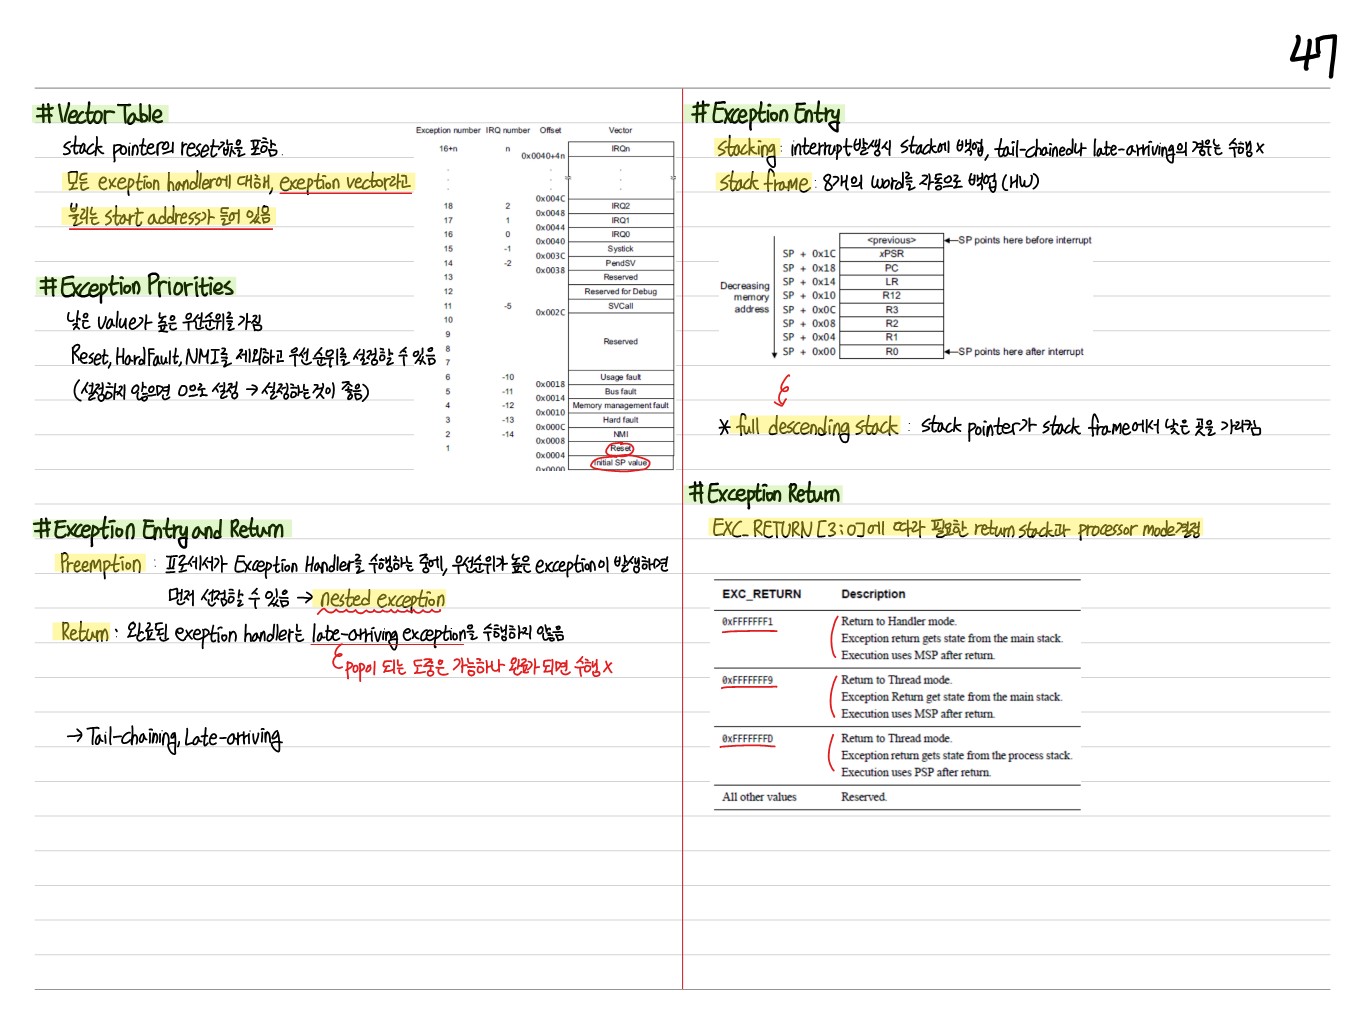 47
# Vector Table
stack pointer의 reset값을 포함.
모든 exeption handler에 대해, exeption vector라고
불리는 start address가 들어 있음
Exception number IRQ number Offset Vector
16+n n IRQn
0x0040+4n
. . . .
. . . .
. . . .
0x004C
18 2 IRQ2
0x0048
17 1 IRQ1
0x0044
16 0 IRQ0
0x0040
15 -1 Systick
0x003C
14 -2 PendSV
0x0038
13 Reserved
12 Reserved for Debug
11 -5 SVCall
0x002C
10
9
Reserved
8
7
6 -10 Usage fault
0x0018
5 -11 Bus fault
0x0014
4 -12 Memory management fault
0x0010
3 -13 Hard fault
0x000C
2 -14 NMI
0x0008
1 Reset
0x0004
Initial SP value
0x0000
# Exception Priorities
낮은 value가 높은 우선순위를 가짐
Reset, HardFault, NMI를 제외하고 우선 순위를 설정할 수 있음
(설정하지 않으면 0으로 설정 → 설정하는것이 좋음)
# Exception Entry and Return
Preemption : 프로세서가 Exception Handler를 수행하는 중에, 우선순위가 높은 exception이 발생하면
먼저 선점할 수 있음 → nested exception
Return : 완료된 exeption handler는 late-arriving exception을 수행하지 않음
pop이 되는 도중은 가능하나 완료가 되면 수행 x
→ Tail-chaining, Late-arriving
# Exception Entry
stacking : interrupt발생시 stack에 백업, tail-chained나 late-arriving의 경우는 수행 x
stack frame : 8개의 word를 자동으로 백업 (HW)
<previous> SP points here before interrupt
SP + 0x1C xPSR
SP + 0x18 PC
SP + 0x14 LR
Decreasing
memory
address
SP + 0x10 R12
SP + 0x0C R3
SP + 0x08 R2
SP + 0x04 R1
SP + 0x00 R0 SP points here after interrupt
* full descending stack : stack pointer가 stack frame에서 낮은 곳을 가리킴
# Exception Return
EXC_RETURN [3:0]에 따라 필요한 return stack과 processor mode결정
EXC_RETURN Description
0xFFFFFFF1 Return to Handler mode.
Exception return gets state from the main stack.
Execution uses MSP after return.
0xFFFFFFF9 Return to Thread mode.
Exception Return get state from the main stack.
Execution uses MSP after return.
0xFFFFFFFD Return to Thread mode.
Exception return gets state from the process stack.
Execution uses PSP after return.
All other values Reserved.